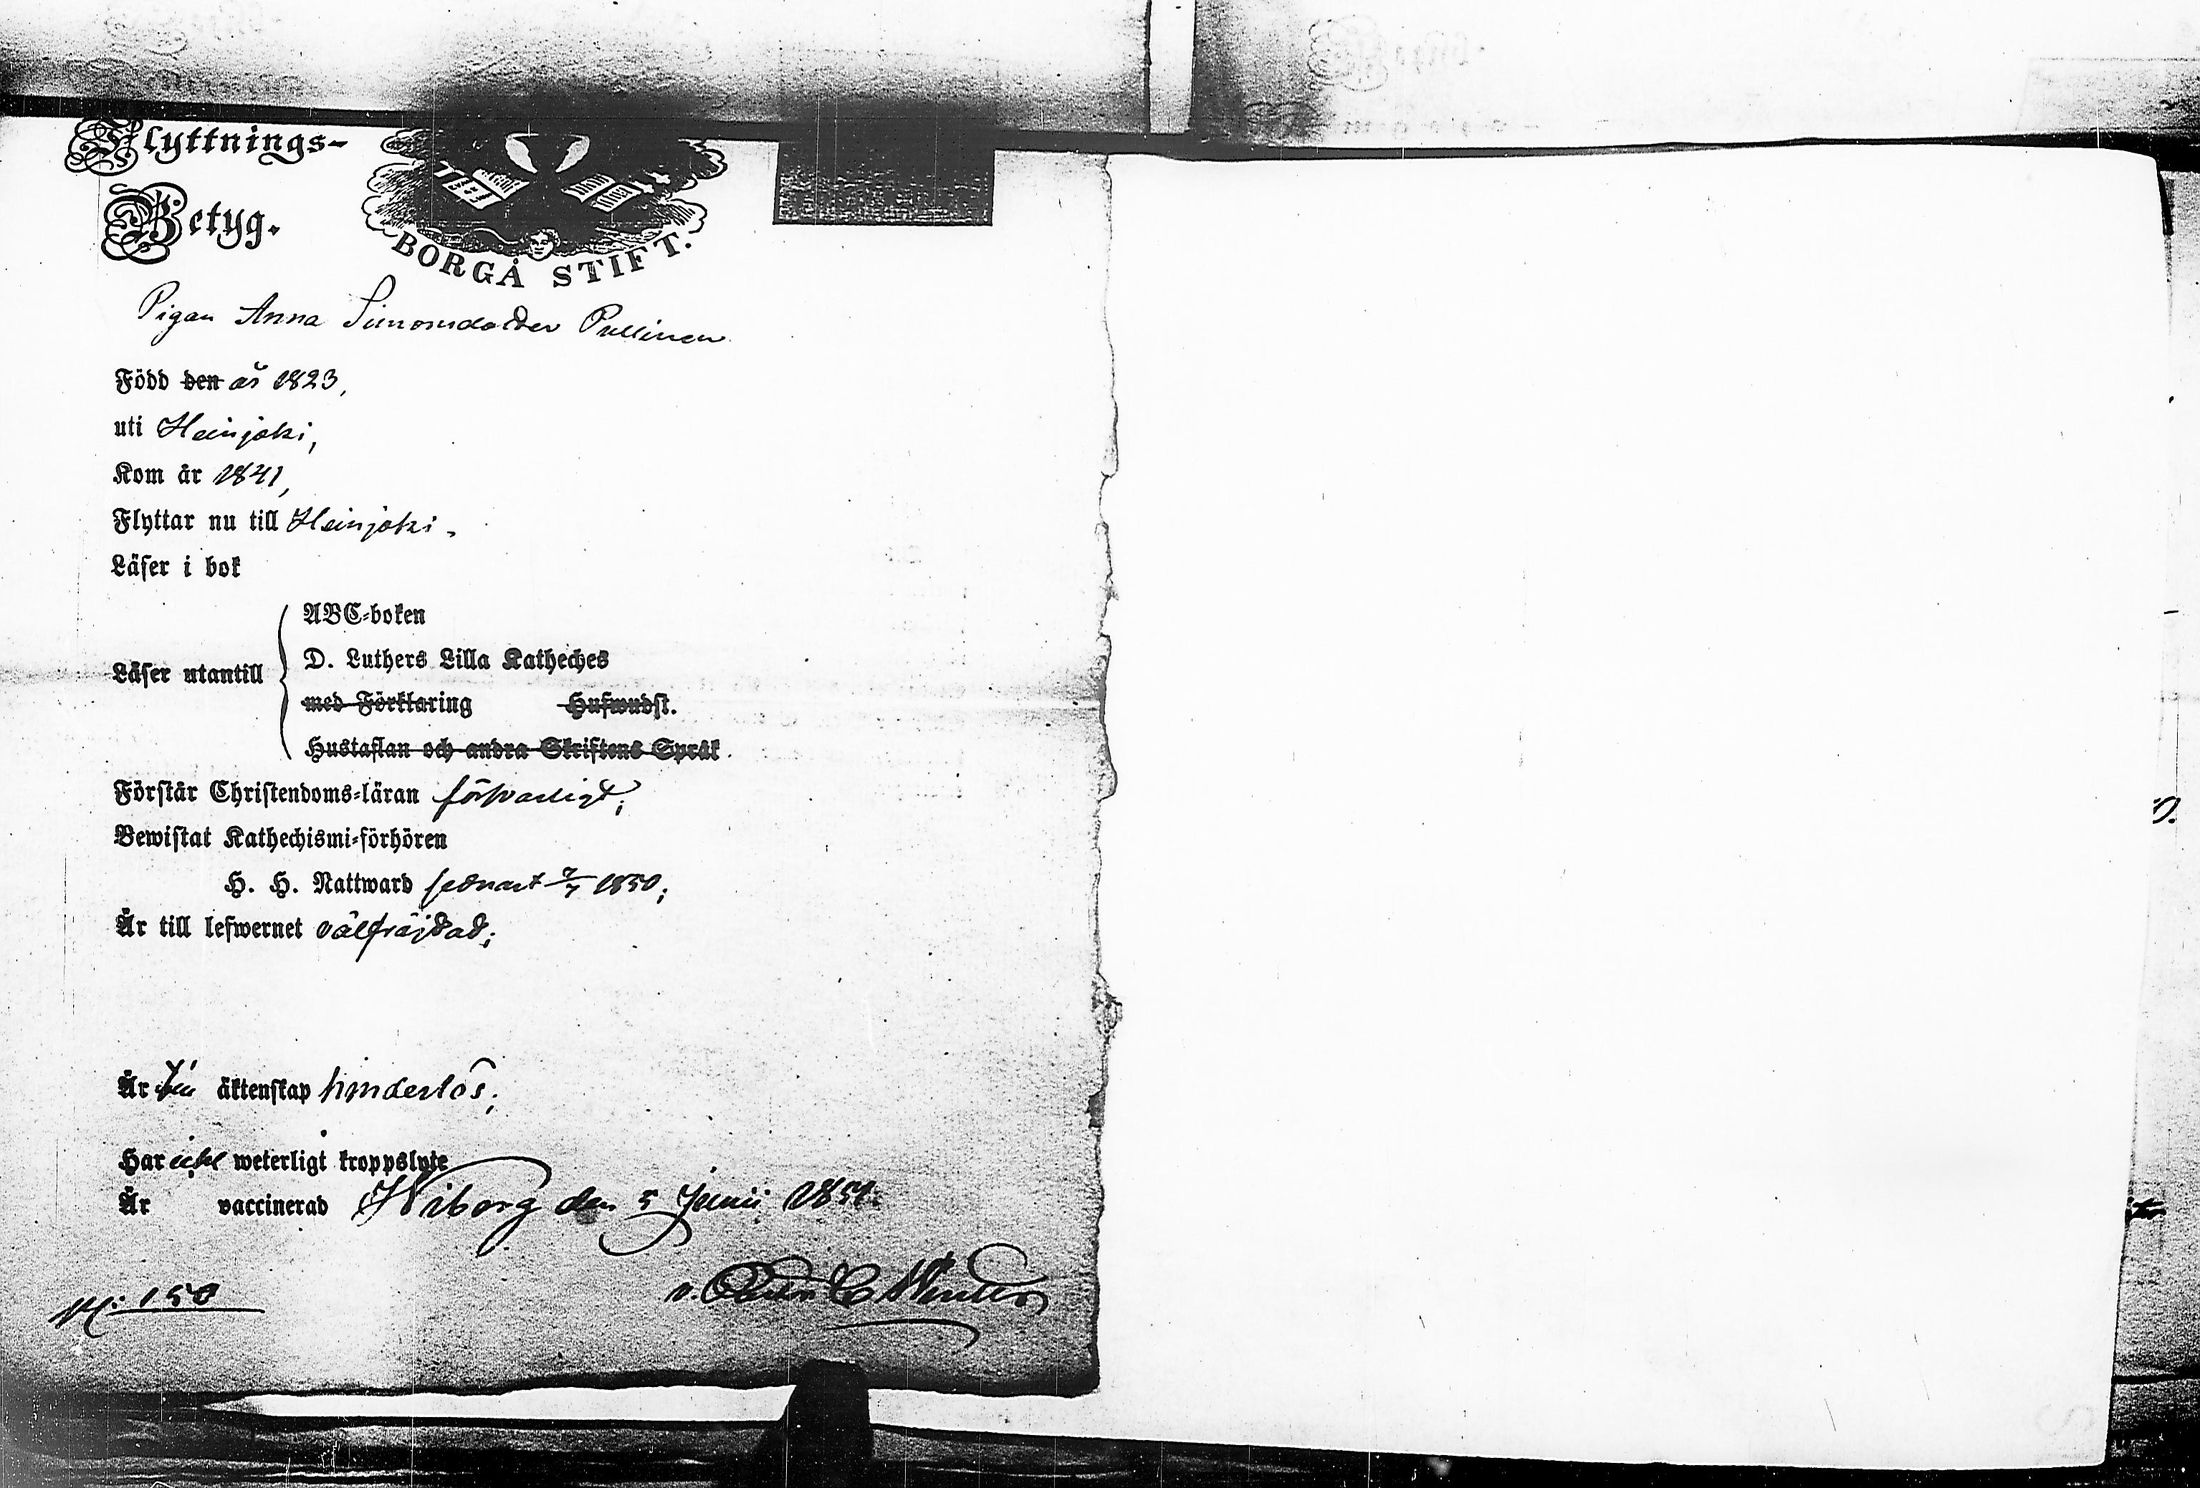 Flyttnings-
Betyg.
BORGÅ STIFT.
Pigan Anna Simonsdotter Pullinen
Född den år 1823,
uti Heinjoki,
Kom år 1841,
Flyttar nu till Heinjoki.
Läser i bok
Läser utantill
ABC-boken
D. Luthers Lilla Katheches
med Förklaring Hufwudst.
Hustaflan och andra Skriftens Språk.
Förstår Christendoms-läran försvarligt;
Bewistat Kathechismi-förhören
H. H. Nattward sednast 7/7 1850;
Är till lefwernet välfräjdad;
Är till äktenskap hinderlös;
Har icke weterligt kroppslyte
Är vaccinerad Wiborg den 5 Junii 1851.
N: 150